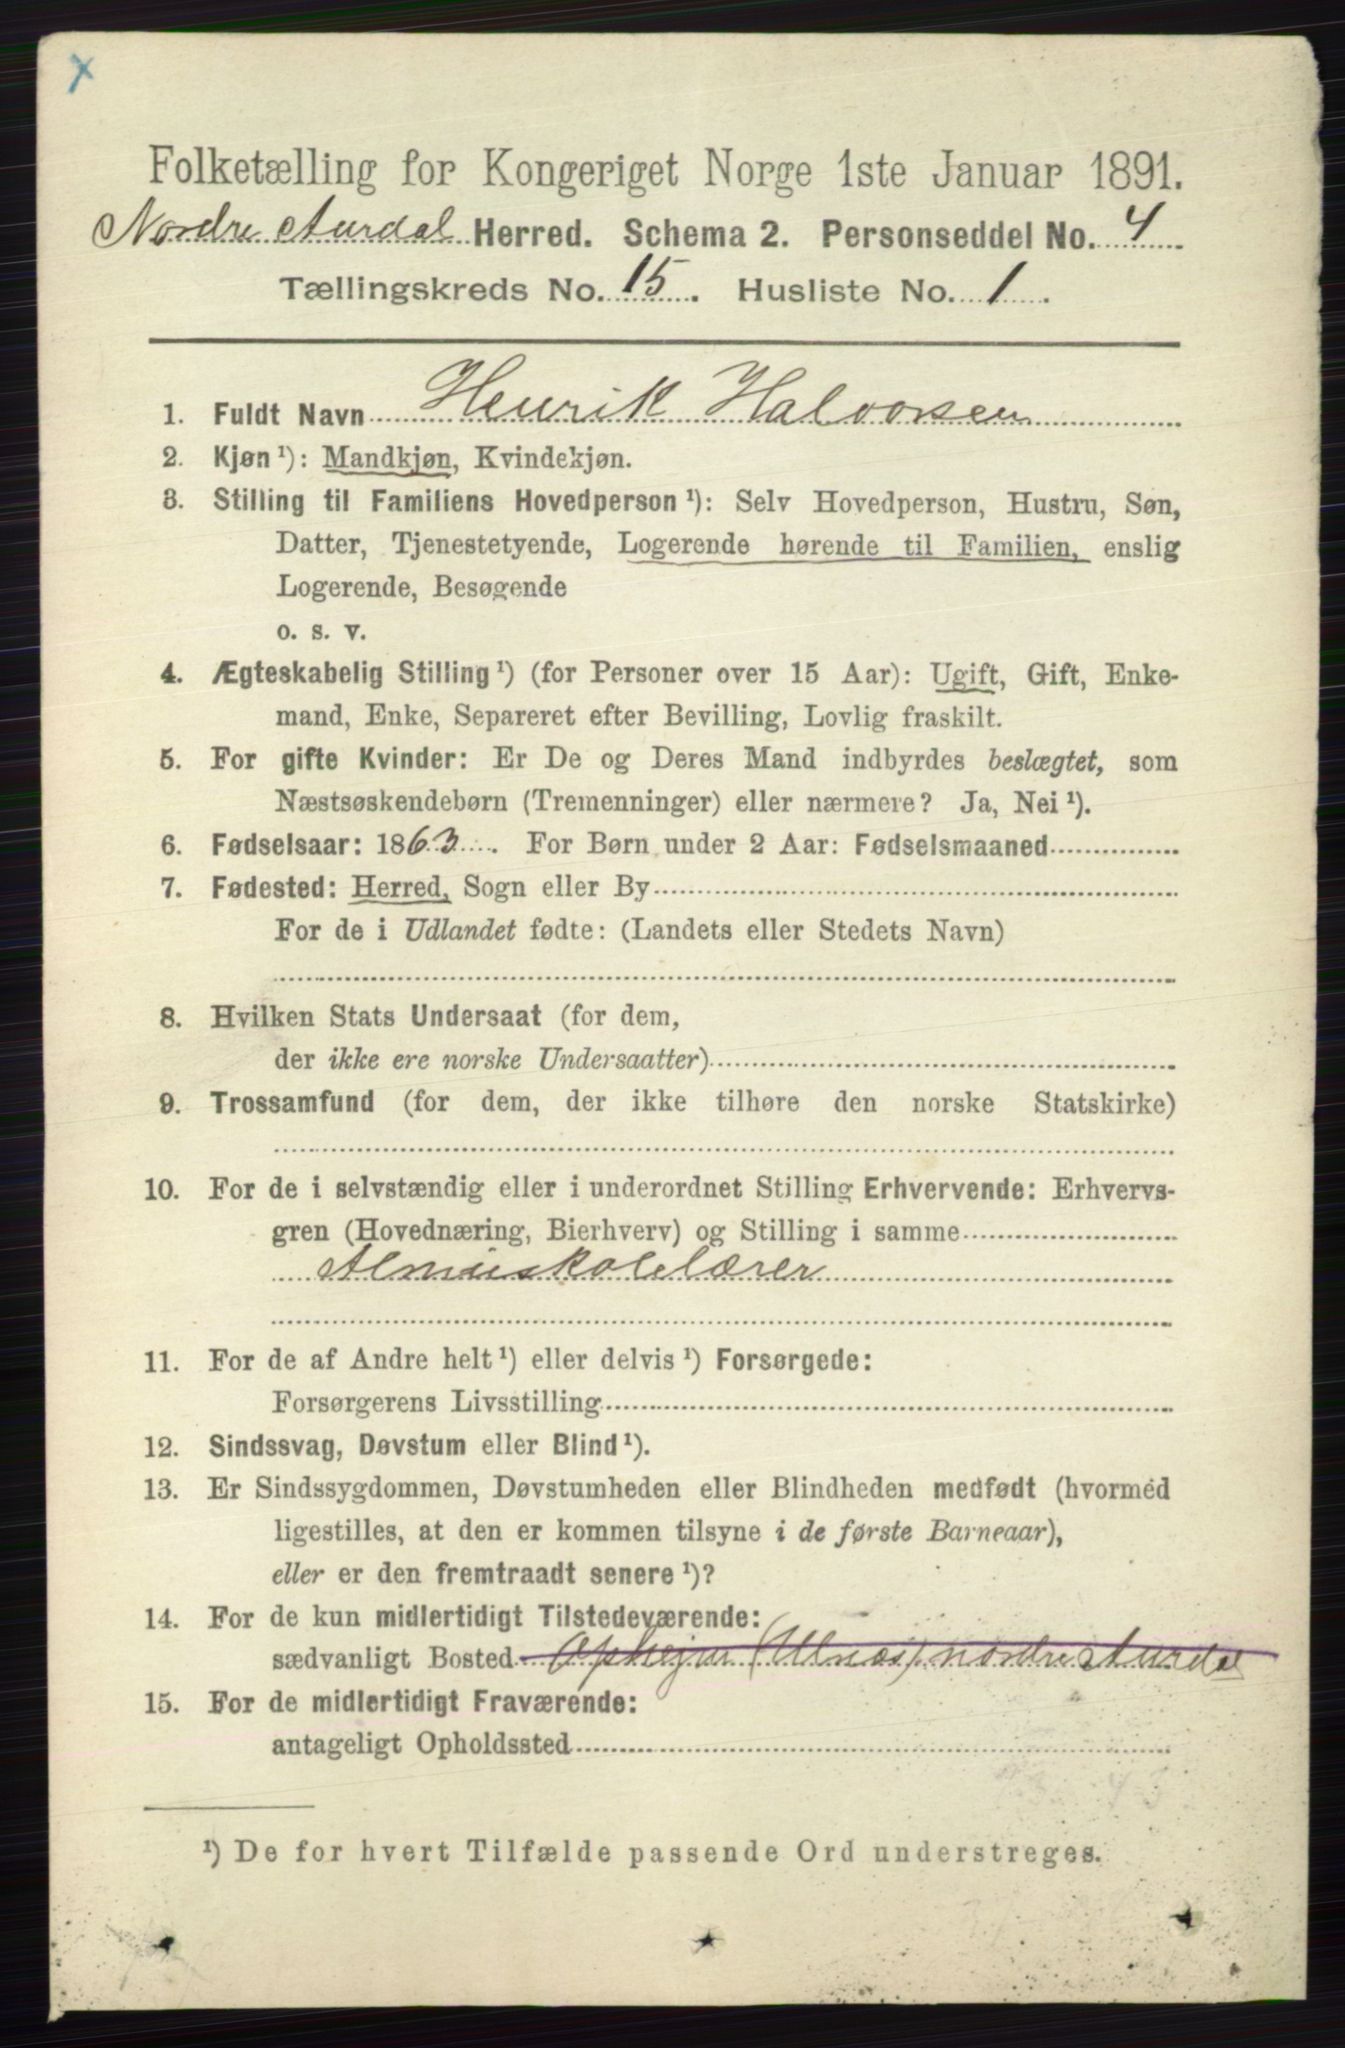 Folketælling for Kongeriget Norge 1ste Januar 1891.
Nordre Aurdal Herred. Schema 2. Personseddel No. 4
Tællingskreds No. 15. Husliste No. 1.
1. Fuldt Navn Henrik Halvorsen
2. Kjøn ¹): Mandkjøn, Kvindekjøn.
3. Stilling til Familiens Hovedperson ¹): Selv Hovedperson, Hustru, Søn,
Datter, Tjenestetyende, Logerende hørende til Familien, enslig
Logerende, Besøgende
o. s. v.
4. Ægteskabelig Stilling ¹) (for Personer over 15 Aar): Ugift, Gift, Enke-
mand, Enke, Separeret efter Bevilling, Lovlig fraskilt.
5. For gifte Kvinder: Er De og Deres Mand indbyrdes beslægtet, som
Næstsøskendebørn (Tremenninger) eller nærmere? Ja, Nei ¹).
6. Fødselsaar: 1863. For Børn under 2 Aar: Fødselsmaaned
7. Fødested: Herred, Sogn eller By
For de i Udlandet fødte: (Landets eller Stedets Navn)
8. Hvilken Stats Undersaat (for dem,
der ikke ere norske Undersaatter)
9. Trossamfund (for dem, der ikke tilhøre den norske Statskirke)
10. For de i selvstændig eller i underordnet Stilling Erhvervende: Erhvervs-
gren (Hovednæring, Bierhverv) og Stilling i samme
Almueskolelærer
11. For de af Andre helt ¹) eller delvis ¹) Forsørgede:
Forsørgerens Livsstilling
12. Sindssvag, Døvstum eller Blind ¹).
13. Er Sindssygdommen, Døvstumheden eller Blindheden medfødt (hvormed
ligestilles, at den er kommen tilsyne i de første Barneaar),
eller er den fremtraadt senere ¹)?
14. For de kun midlertidigt Tilstedeværende:
sædvanligt Bosted Ophejm (Ulnæs) nordre Aurdal
15. For de midlertidigt Fraværende:
antageligt Opholdssted
¹) De for hvert Tilfælde passende Ord understreges.